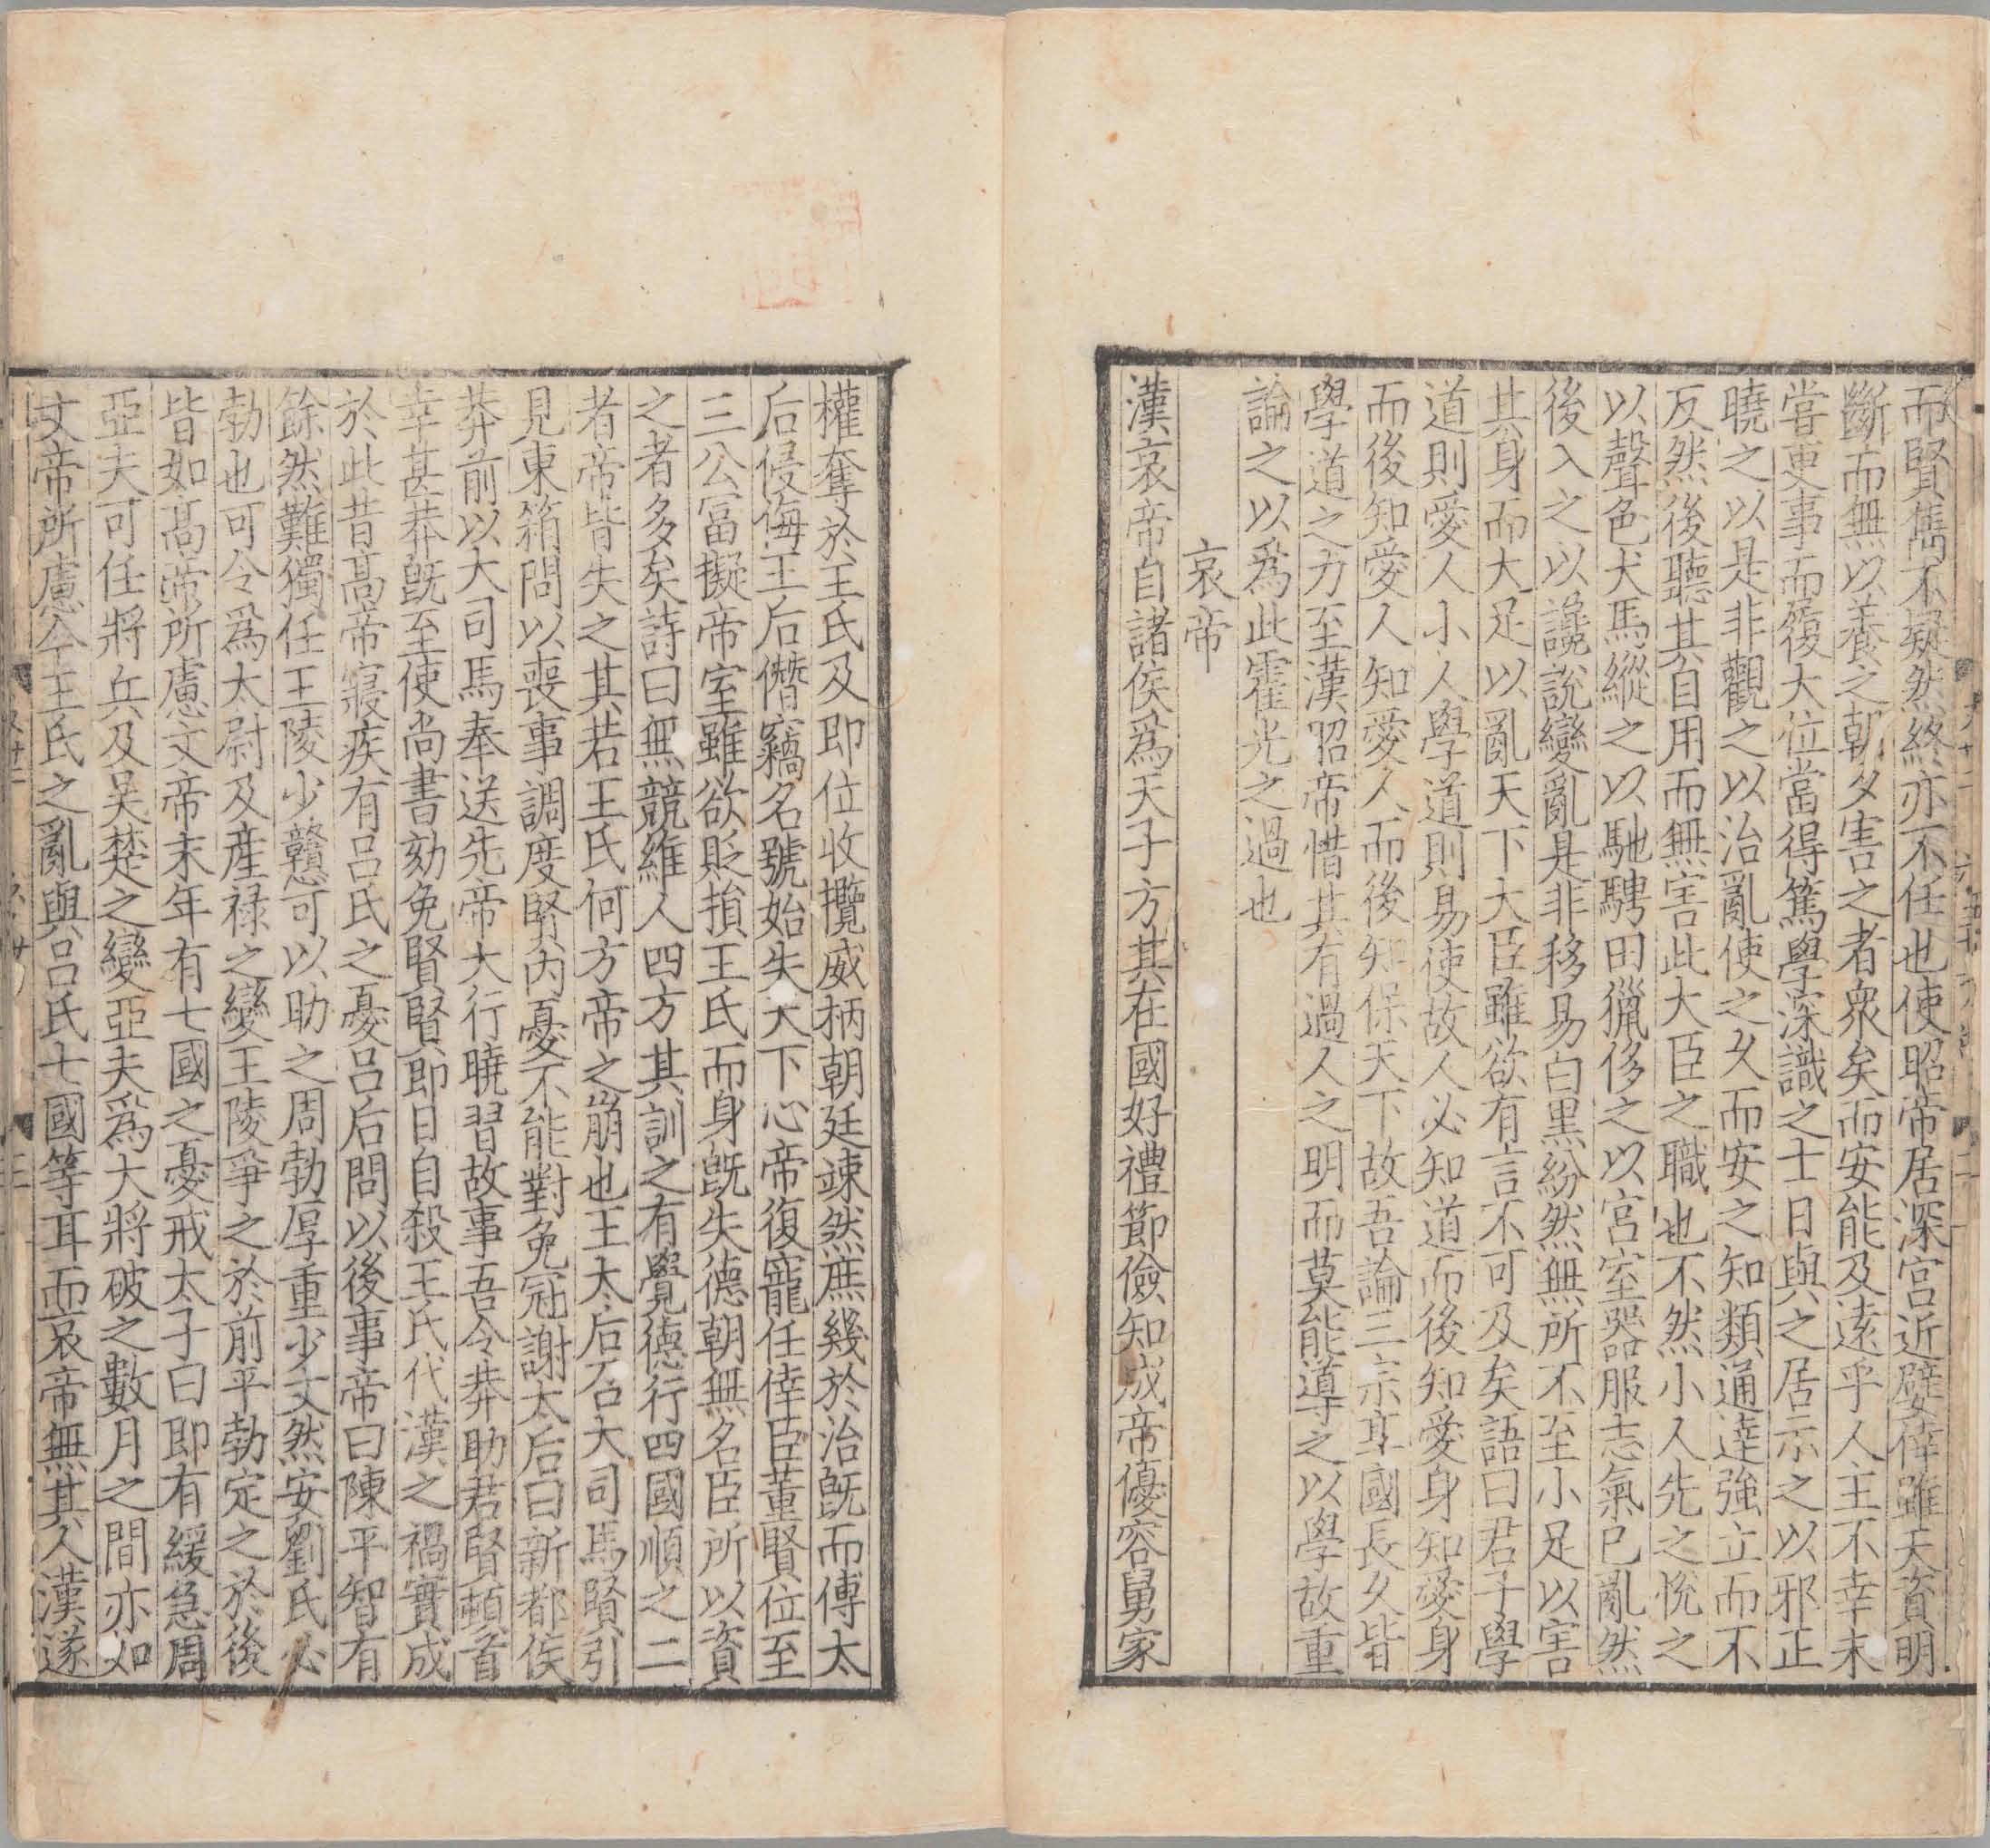 而賢雋不疑然終亦不任也使昭帝居深宫近嬖倖雖天資明
斷而無以養之朝夕害之者衆矣而安能及遠乎人主不幸未
嘗更事而履大位當得篤學深識之士日與之居示之以邪正
曉之以是非觀之以治亂使之久而安之知類通逹強立而不
反然後聽其自用而無害此大臣之職也不然小人先之恱之
以聲色犬馬縱之以馳騁田獵侈之以宫室器服志氣已亂然
後入之以讒說變亂是非移易白黒紛然無所不至小足以害
其身而大足以亂天下大臣雖欲有言不可及矣語曰君子學
道則愛人小人學道則易使故人必知道而後知愛身知愛身
而後知愛人知愛人而後知保天下故吾論三宗享國長久皆
學道之力至漢昭帝惜其有過人之明而莫能導之以學故重
論之以爲此霍光之過也
哀帝
漢哀帝自諸侯爲天子方其在國好禮節儉知成帝優容舅家
權奪於王氏及即位收攬威柄朝廷竦然庶幾於治旣而傅太
后侵侮王后僭竊名號始失天下心帝復寵任倖臣董賢位至
三公冨擬帝室雖欲貶損王氏而身旣失德朝無名臣所以資
之者多矣詩曰無競維人四方其訓之有覺德行四國順之二
者帝皆失之其若王氏何方帝之崩也王太后召大司馬賢引
見東箱問以喪事調度賢内憂不能對免冠謝太后曰新都侯
莽前以大司馬奉送先帝大行曉習故事吾令莽助君賢頓首
幸甚莽旣至使尚書劾免賢賢即日自殺王氏代漢之禍實成
於此昔髙帝寢疾有吕氏之憂吕后問以後事帝曰陳平智有
餘然難獨任王陵少戇可以助之周勃厚重少文然安劉氏必
勃也可令爲太尉及産禄之變王陵爭之於前平勃定之於後
皆如髙帝所慮文帝末年有七國之憂戒太子曰即有緩急周
亞夫可任將兵及吴楚之變亞夫爲大將破之數月之間亦如
文帝所慮今王氏之亂與吕氏七國等耳而哀帝無其人漢遂